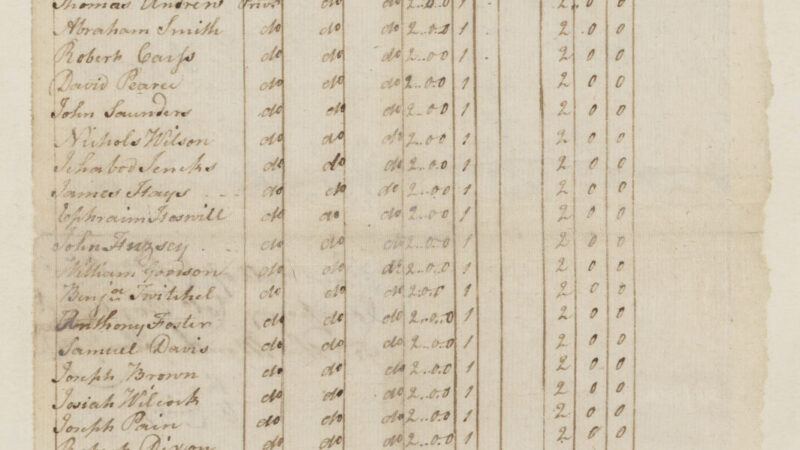 Thomas Andrews Priv do do 2..0.0 1 2 0 0
Abraham Smith do do do 2..0.0 1 2 0 0
Robert Carss do do do 2..0.0 1 2 0 0
David Pearce do do do 2..0.0 1 2 0 0
John Saunders do do do 2..0.0 1 2 0 0
Nichols Wilson do do do 2..0.0 1 2 0 0
Ichabod Jencks do do do 2..0.0 1 2 0 0
James Hays do do do 2..0.0 1 2 0 0
Ephraim Hoswill do do do 2..0.0 1 2 0 0
John do do do 2..0.0 1 2 0 0
William Goodson do do do 2..0.0 1 2 0 0
Benja Twitchel do do do 2.0.0 1 2 0 0
Anthony Foster do do do 2..0..0 1 2 0 0
Samuel Davis do do do 2..0.0 1 2 0 0
Joseph Brown do do do 2..0.0 1 2 0 0
Josiah Wilcock do do do 2..0.0 1 2 0 0
Joseph Pain do do do 2..0.0 1 2 0 0
Dixon do do do 2..0.0 1 2 0 0